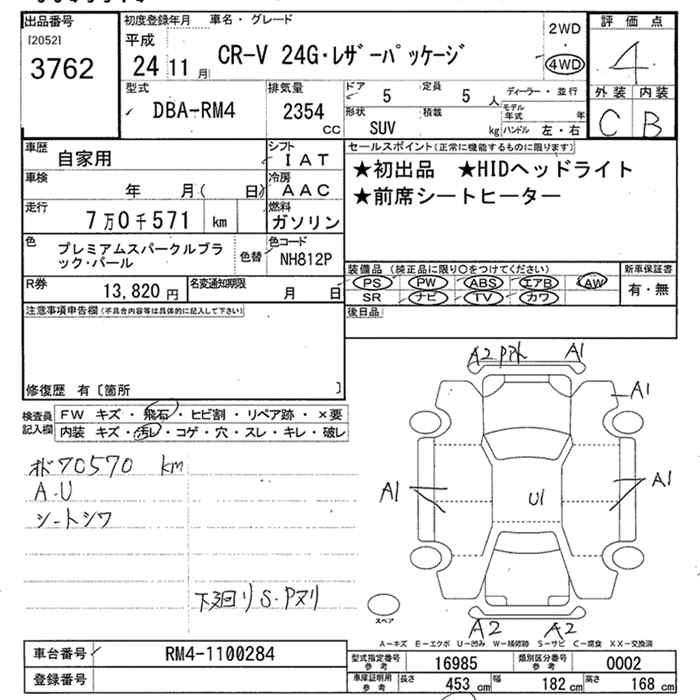 出品番号
[2052]
3762
初度登録年月
平成
24 11 月
車名・グレード
CR-V 24G・レザーパッケージ
2WD
4WD
評価点
4
外装 内装
C B
型式
DBA-RM4
排気量
2354
CC
ドア
5
定員
5 人
形状
SUV
積載
kg
ディーラー・並行
モデル年式 年
ハンドル 左・右
車歴
自家用
シフト
IAT
車検
年 月( 日)
冷房
AAC
走行
7万0千571 km
燃料
ガソリン
色
プレミアムスパークルブラ
ック・パール
色替
色コード
NH812P
R券
13,820 円
名変通知期限
月 日
セールスポイント(正常に機能するものに限ります)
★初出品 ★HIDヘッドライト
★前席シートヒーター
装備品 (純正品に限り〇をつけてください)
PS PW ABS エアB AW
SR ナビ TV カワ
新車保証書
有・無
後日品
注意事項申告欄(不具合内容等は具体的に記入して下さい)
修復歴 有〔箇所 〕
検査員
記入欄
FW キズ・飛石・ヒビ割・リペア跡・×要
内装 キズ・汚レ・コゲ・穴・スレ・キレ・破レ
70570 km
A.U
シートシワ
下廻り S.Pヌリ
A2 A1
A1
A1
A1
U1
A2 A2
スペア
A-キズ E-エクボ U-凹み W-補修跡 S-サビ C-腐食 XX-交換済
車台番号
RM4-1100284
登録番号
型式指定番号
参考
16985
類別区分番号
参考
0002
車庫証明用
参考
長さ
453 cm
幅
182 cm
高さ
168 cm